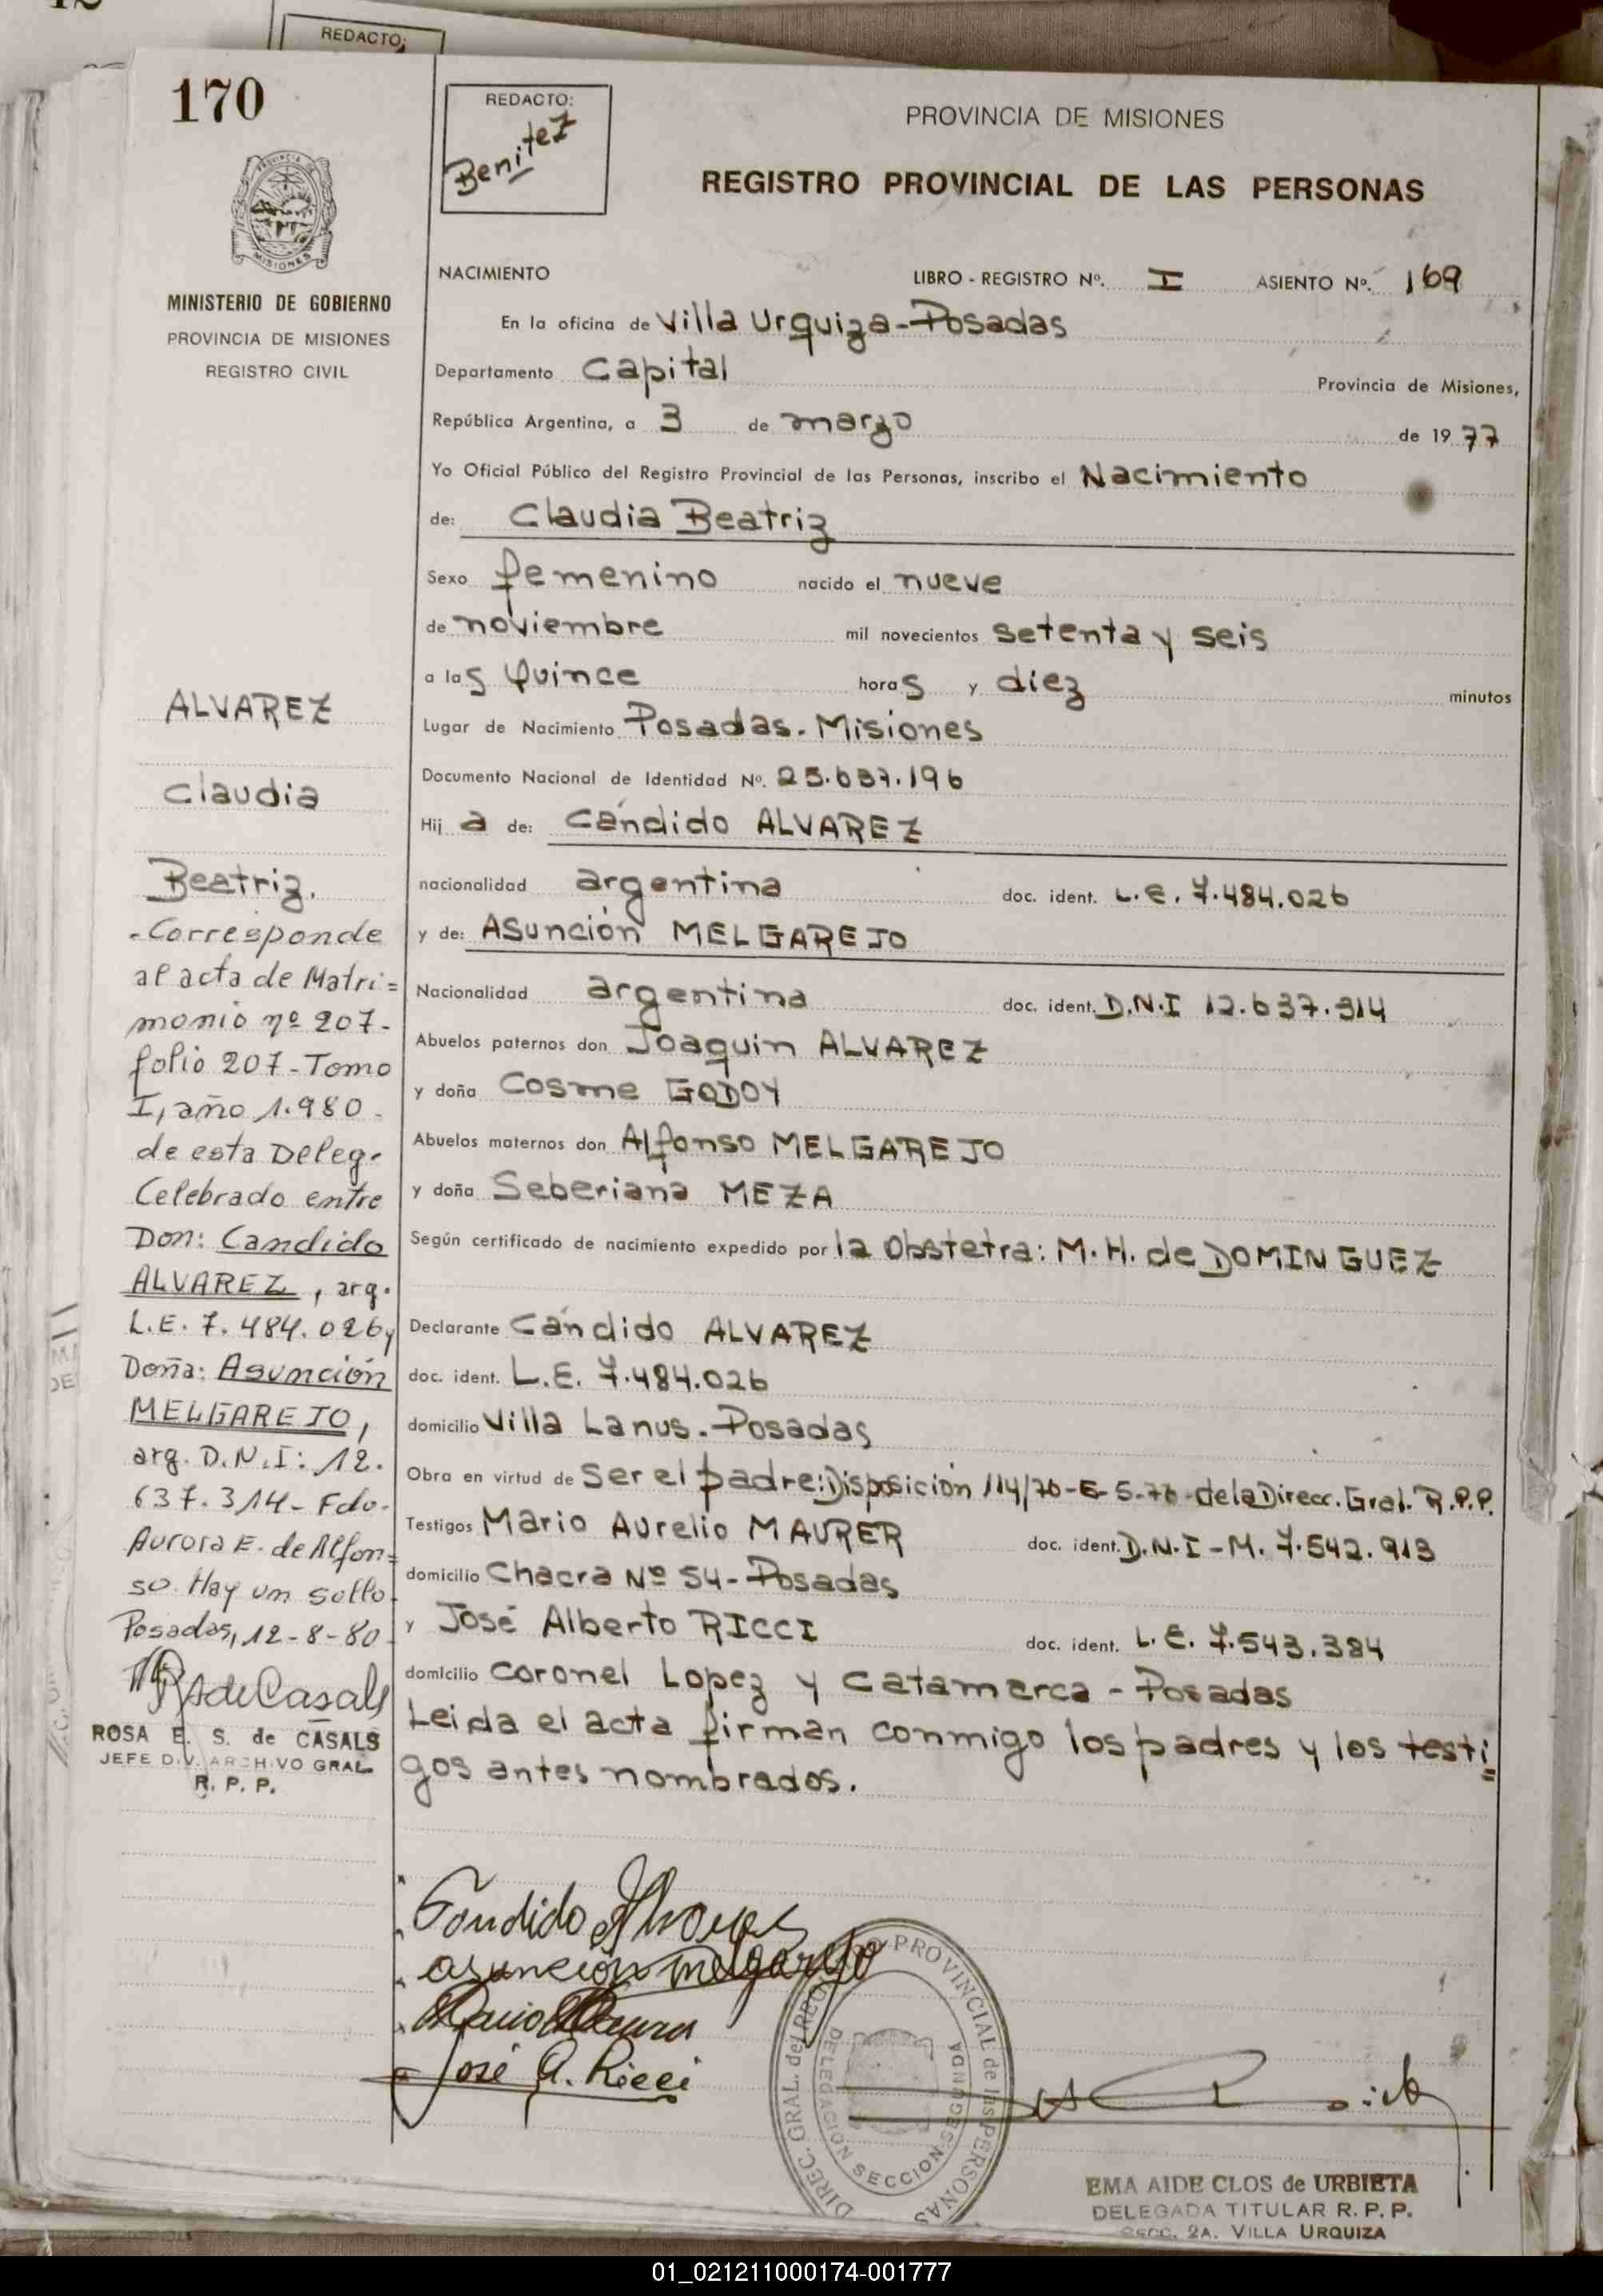 REDACTO:
170
REDACTO:
Benitez
PROVINCIA DE MISIONES
REGISTRO PROVINCIAL DE LAS PERSONAS
PROVINCIA DE
MISIONES
MINISTERIO DE GOBIERNO
PROVINCIA DE MISIONES
REGISTRO CIVIL
NACIMIENTO LIBRO - REGISTRO Nº. I ASIENTO Nº. 169
En la oficina de Villa Urquiza-Posadas
Departamento Capital Provincia de Misiones,
República Argentina, a 3 de marzo de 1977
Yo Oficial Público del Registro Provincial de las Personas, inscribo el Nacimiento
de: Claudia Beatriz
Sexo femenino nacido el nueve
de noviembre mil novecientos setenta y seis
a las Quince horas y diez minutos
Lugar de Nacimiento Posadas. Misiones
Documento Nacional de Identidad Nº. 25.637.196
Hija de: Cándido ALVAREZ
nacionalidad argentina doc. ident. L.E. 7.484.026
y de: Asunción MELGAREJO
Nacionalidad argentina doc. ident. D.N.I 12.637.314
Abuelos paternos don Joaquin ALVAREZ
y doña Cosme GODOY
Abuelos maternos don Alfonso MELGAREJO
y doña Seberiana MEZA
Según certificado de nacimiento expedido por la Obstetra: M.H. de DOMINGUEZ
Declarante Cándido ALVAREZ
doc. ident. L.E. 7.484.026
domicilio Villa Lanus.-Posadas
Obra en virtud de Ser el padre: Disposición 114/76-6-5-76-de la Direcc. Gral. R.P.P.
Testigos Mario Aurelio MAURER doc. ident. D.N.I-M. 7.542.913
domicilio Chacra Nº 54-Posadas
y José Alberto RICCI doc. ident. L.E. 7.543.384
domicilio Coronel Lopez y Catamarca - Posadas
Leida el acta firman conmigo los padres y los testi=
gos antes nombrados.
ALVAREZ
Claudia
Beatriz.
-Corresponde
al acta de Matri=
monio nº 207-
folio 207-Tomo
I, año 1.980.
de esta Deleg.
Celebrado entre
Don: Candido
ALVAREZ, arg.
L.E. 7.484.026 y
Doña: Asunción
MELGAREJO,
arg. D.N.I: 12.
637.314- Fdo.
Aurora E. de Alfon=
so. Hay un sello.
Posadas, 12-8-80
RSdeCasals
ROSA E. S. de CASALS
JEFE DIV. ARCHIVO GRAL
R. P. P.
Candido Alvarez
asunción melgarejo
Mario Maurer
José A. Ricci
DIREC. GRAL. del REGISTRO PROVINCIAL de las PERSONAS
DELEGACION SECCION SEGUNDA
EMA AIDE CLOS de URBIETA
DELEGADA TITULAR R. P. P.
SECC. 2A. VILLA URQUIZA
01_021211000174-001777